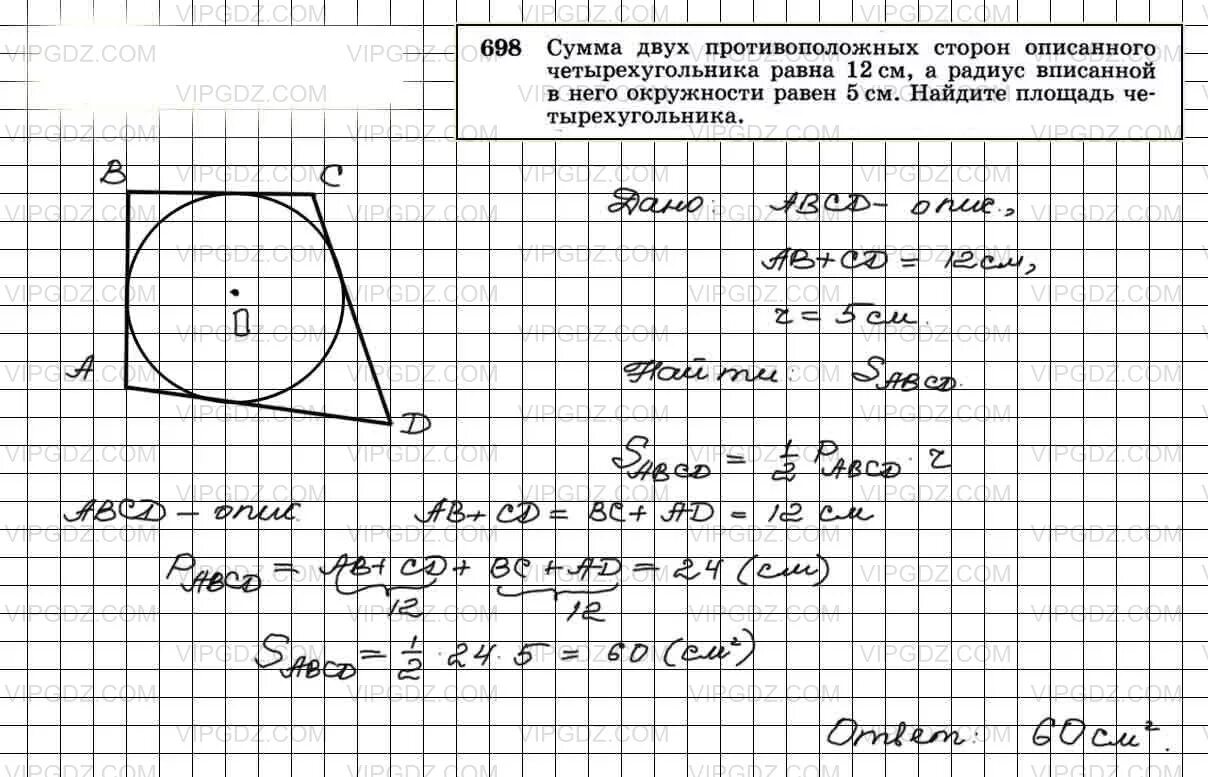 698 Сумма двух противоположных сторон описанного
четырехугольника равна 12 см, а радиус вписанной
в него окружности равен 5 см. Найдите площадь че-
тырехугольника.
B C
A D
O
Дано: ABCD – опис.,
AB + CD = 12 см,
r = 5 см.
Найти: S_ABCD.
S_ABCD = 1/2 P_ABCD · r
ABCD – опис. AB + CD = BC + AD = 12 см
P_ABCD = AB + CD + BC + AD = 24 (см)
12 12
S_ABCD = 1/2 · 24 · 5 = 60 (см²)
Ответ: 60 см².
VIPGDZ.COM